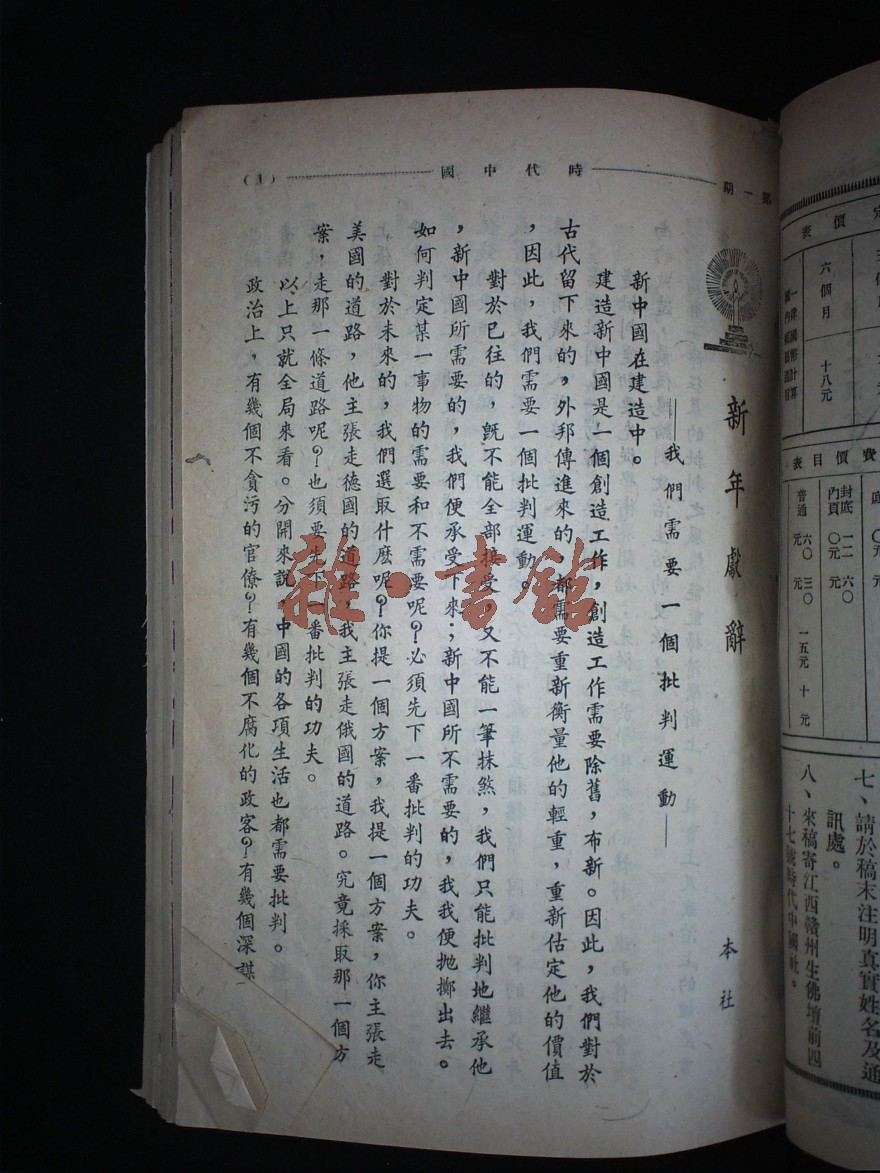 價表
六個月 十八元
費價目表
封底內頁
普通 六〇元 三〇元 一五元 十元
七、請於稿末注明真實姓名及通
訊處。
八、來稿寄江西贛州生佛壇前四
十七號時代中國社。
第一期
時代中國
(1)
新年獻辭
本社
——我們需要一個批判運動——
新中國在建造中。
建造新中國是一個創造工作,創造工作需要除舊,布新。因此,我們對於
古代留下來的,外邦傳進來的,都需要重新衡量他的輕重,重新估定他的價值
,因此,我們需要一個批判運動。
對於已往的,旣不能全部接受,又不能一筆抹煞,我們只能批判地繼承他
,新中國所需要的,我們便承受下來;新中國所不需要的,我我便抛擲出去。
如何判定某一事物的需要和不需要呢?必須先下一番批判的功夫。
對於未來的,我們選取什麽呢?你提一個方案,我提一個方案,你主張走
美國的道路,他主張走德國的道路,我主張走俄國的道路。究竟採取那一個方
案,走那一條道路呢?也須要先下一番批判的功夫。
以上只就全局來看。分開來說,中國的各項生活也都需要批判。
政治上,有幾個不貪污的官僚?有幾個不腐化的政客?有幾個深謀
雜·書館